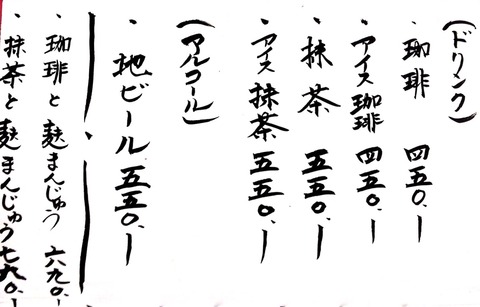 (ドリンク)
・珈琲 四五〇.ー
・アイス珈琲 四五〇.ー
・抹茶 五五〇.ー
・アイス抹茶 五五〇.ー
(アルコール)
・地ビール 五五〇.ー
・珈琲と麩まんじゅう 六九〇.ー
・抹茶と麩まんじゅう 七九〇.ー